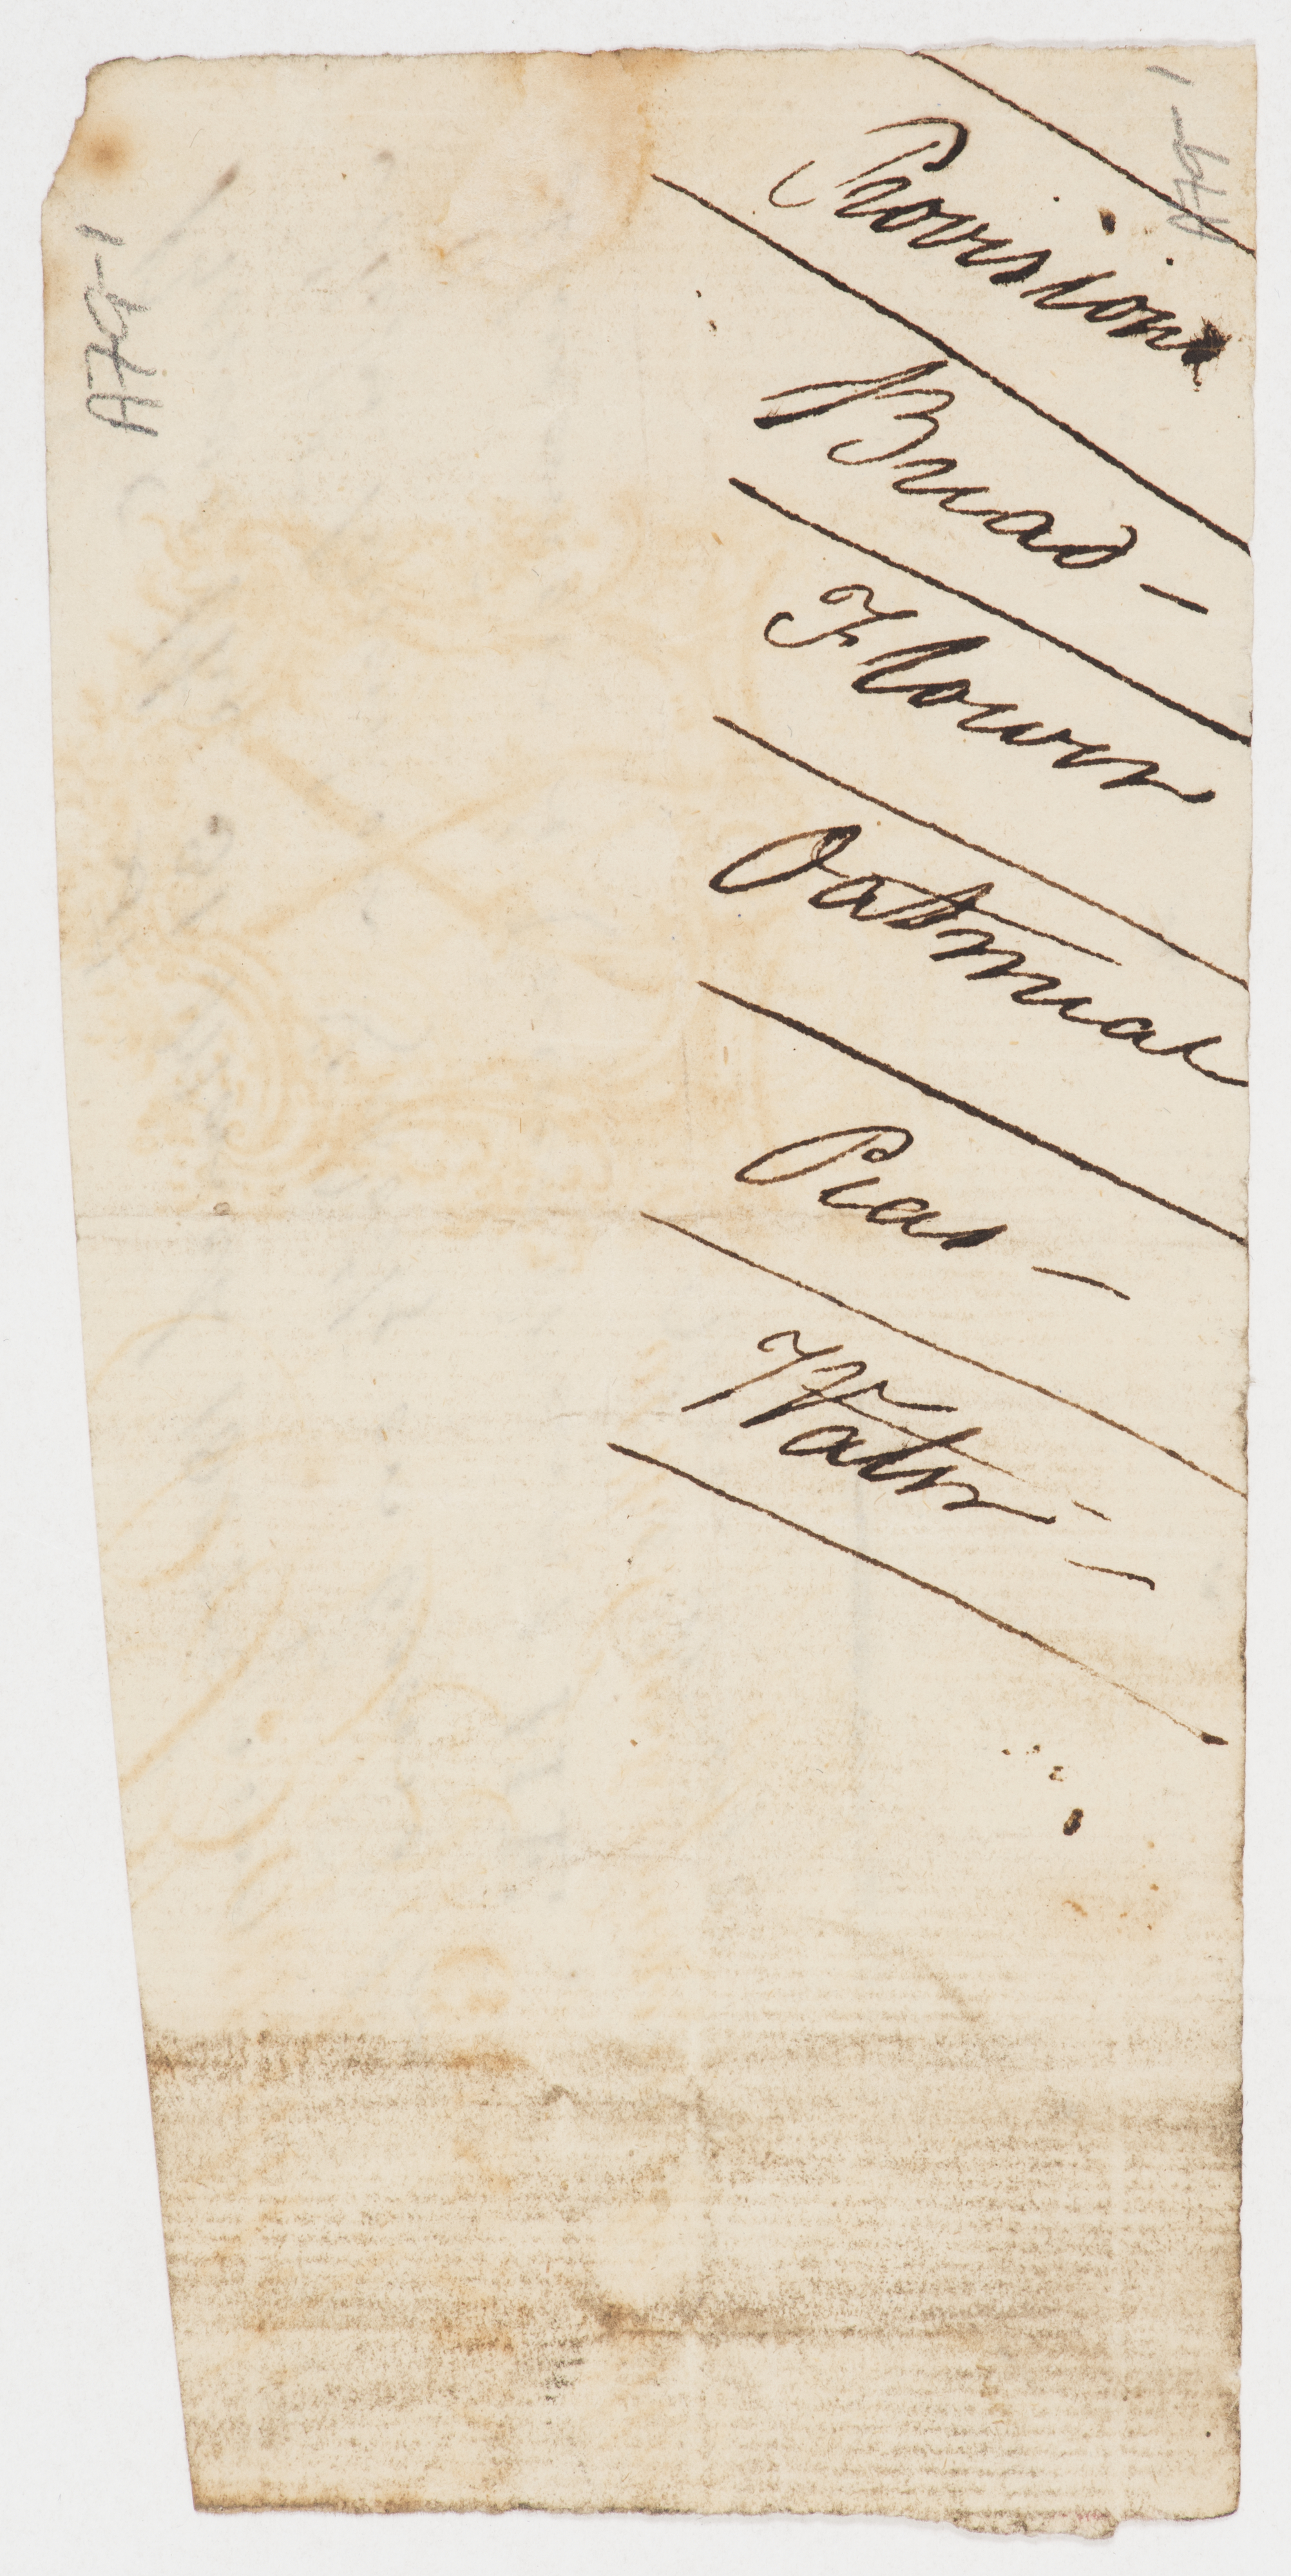 A79-1
Provisions
Bread -
Flower
Oatmeal
Peas -
Water -
A79-1